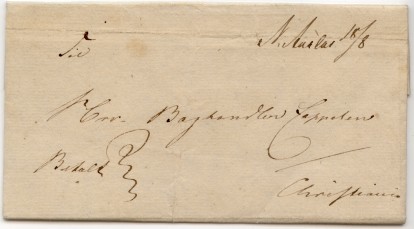 N. Aurdal 18/8
Til
Hrr. Boghandler Cappelen
Betalt
Christiania